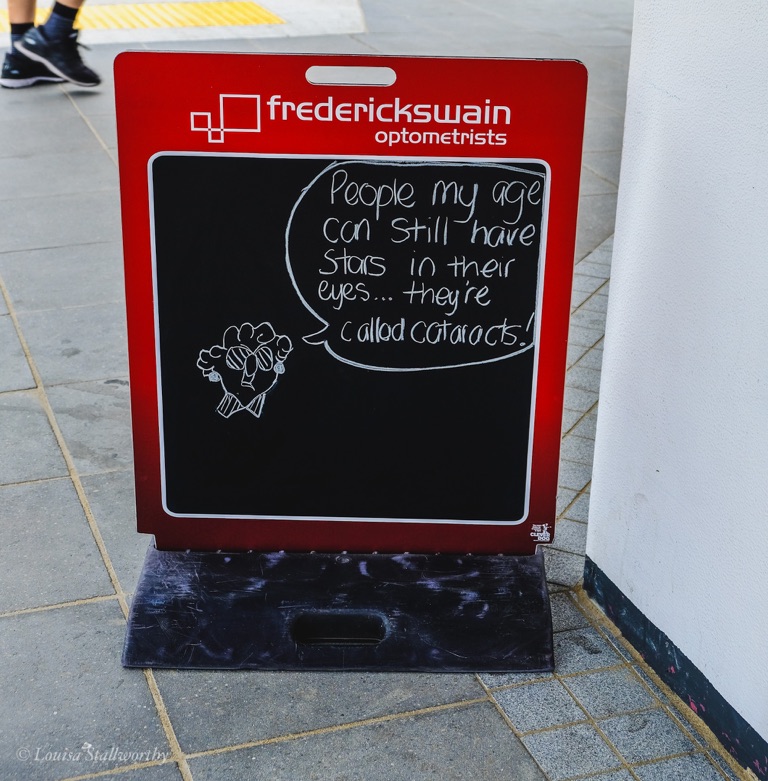 frederickswain
optometrists
People my age
can still have
stars in their
eyes... they're
called cataracts!
CLEVER
DOG
© Louisa Stallworthy